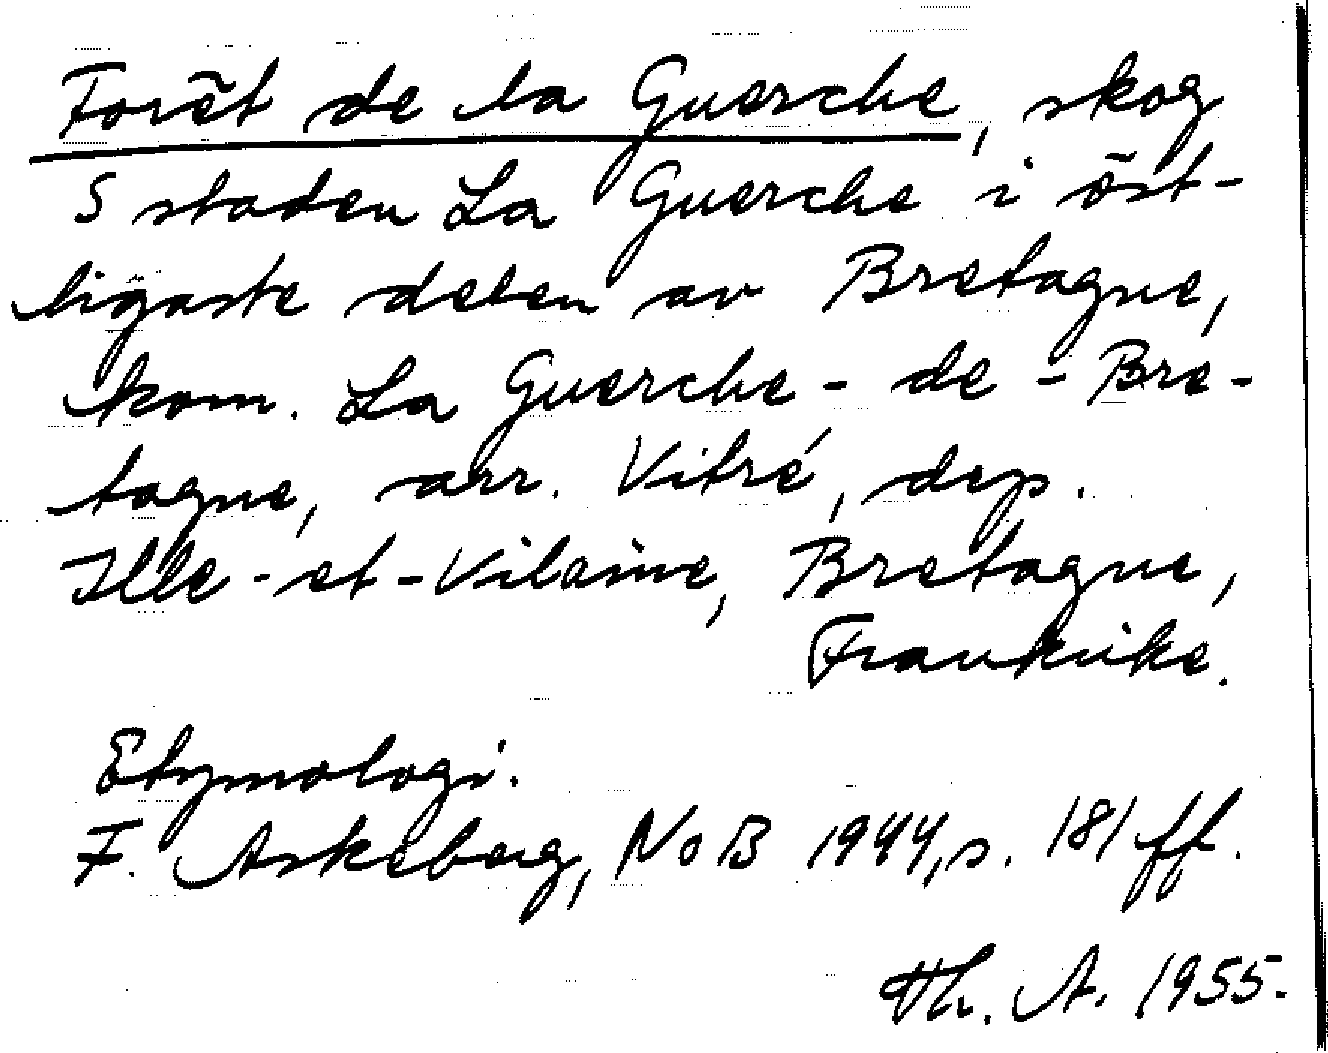 Forêt de la Guerche, skog
S staden La Guerche i öst-
ligaste delen av Bretagne,
kom. La Guerche-de-Bre-
tagne, arr. Vitré, dep.
Ille-et-Vilaine, Bretagne,
Frankrike.
Etymologi.
F. Askeberg, NoB 1944, s. 181 ff.
Th. A. 1955.